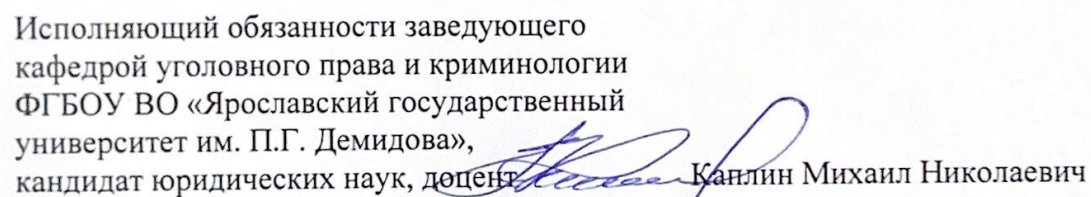 Исполняющий обязанности заведующего
кафедрой уголовного права и криминологии
ФГБОУ ВО «Ярославский государственный
университет им. П.Г. Демидова»,
кандидат юридических наук, доцент Каплин Михаил Николаевич